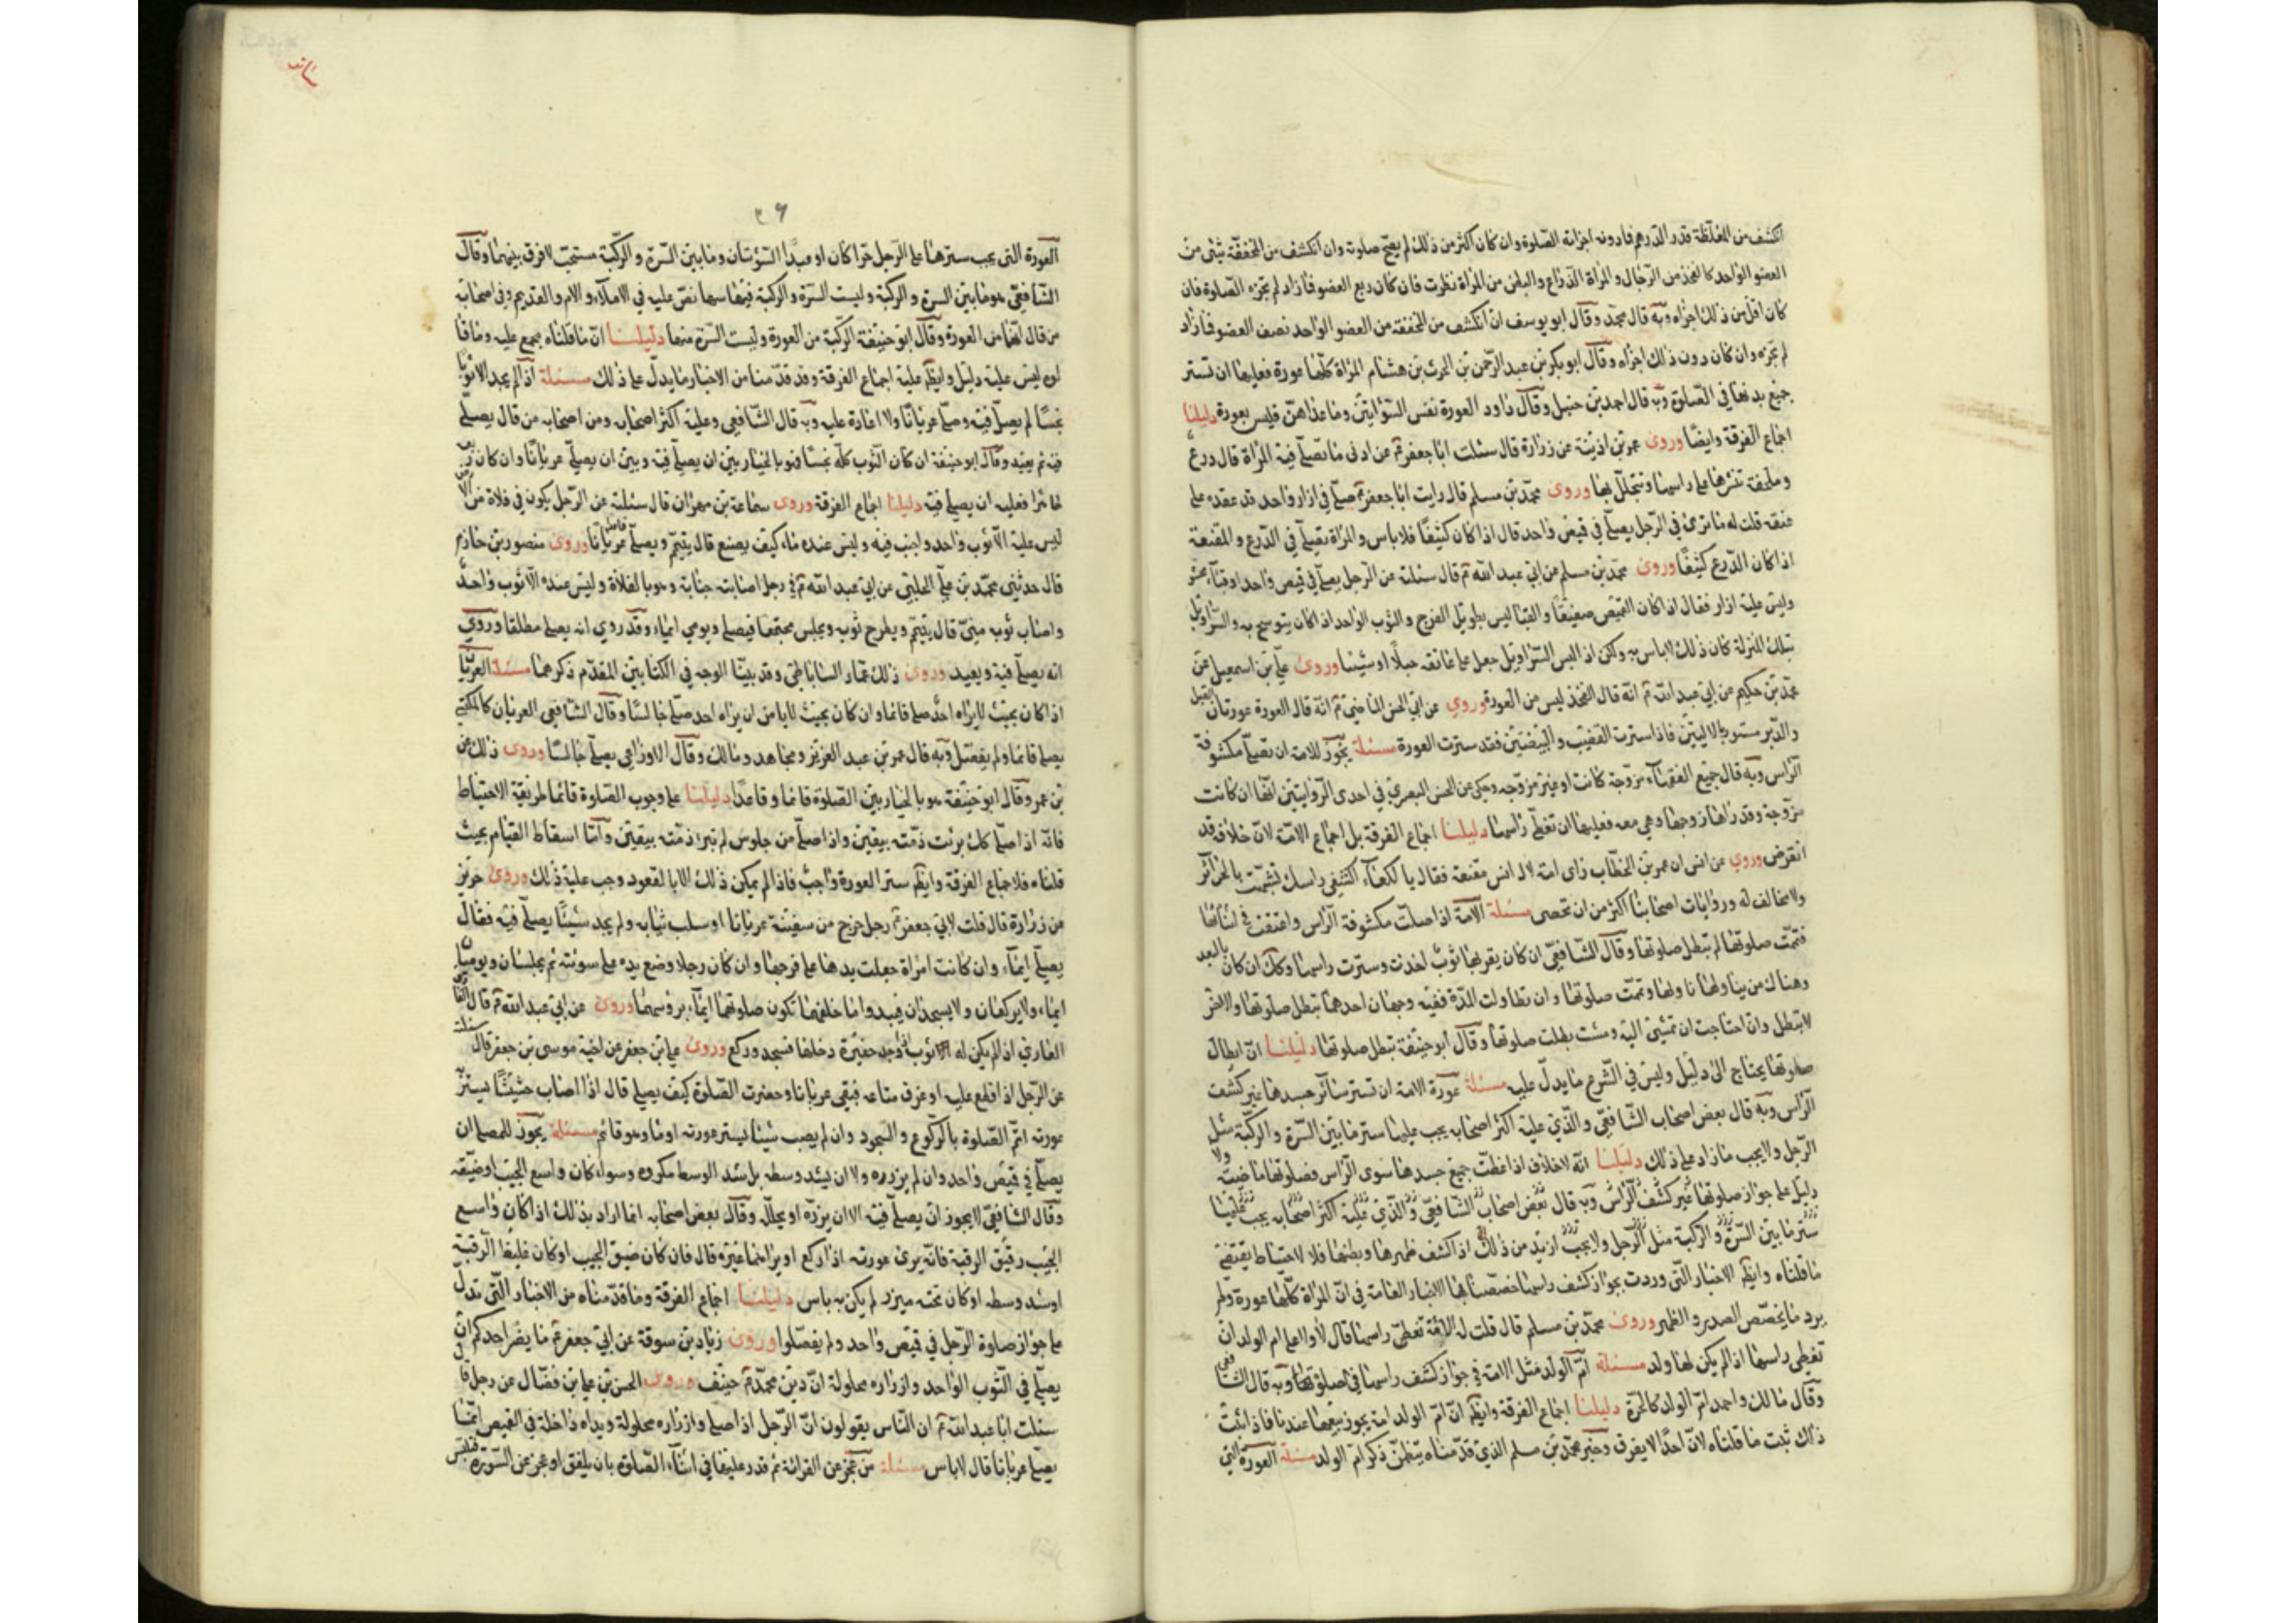 انكشف من المغلظة قدر الدرهم فما دونه اجزاته الصلوة وان كان اكثر من ذلك لم يصح صلوته وان انكشف من المخففة شئ من
العضو الواحد كالفخذ من الرجال والمراة الذراع والبطن من المراة نظرت فان كان ربع العضو فما زاد لم تجزه الصلوة فان
كان اقل من ذلك اجزاه وبه قال محمد وقال ابو يوسف ان انكشف من المخففة من العضو الواحد نصف العضو فما زاد
لم تجزه وان كان دون ذلك اجزاه وقال ابو بكر بن عبد الرحمن بن الحرث بن هشام المراة كلها عورة فعليها ان تستر
جميع بدنها في الصلوة وبه قال احمد بن حنبل وقال داود العورة نفس السوايتين وما عداهن فليس بعورة دليلنا
اجماع الفرقة وايضا وروى عمر بن اذينة عن زرارة قال سئلت ابا جعفر ع عن ادنى ما تصلي فيه المراة قال درع
وملحفة تنشرها على راسها وتتجلل بها وروى محمد بن مسلم قال رايت ابا جعفر ع صلى في ازار واحد قد عقده على
عنقه قلت له ما ترى في الرجل يصلي في قميص واحد قال اذا كان كثيفا فلا باس والمراة تصلي في الدرع والمقنعة
اذا كان الدرع كثيفا وروى محمد بن مسلم عن ابي عبد الله ع قال سئلته عن الرجل يصلي في قميص واحد او قباء محشو
وليس عليه ازار فقال اذا كان القميص صفيقا والقبا ليس بطويل الفرج والثوب الواحد اذا كان يتوسح به والسراويل
بتلك المنزلة كان ذلك لا باس به ولكن اذا لبس السراويل جعل على عاتقه حبلا او شيئا وروى علي بن اسمعيل عن
محمد بن حكيم عن ابي عبد الله ع انه قال الفخذ ليس من العورة وروي عن ابي الحسن الماضي ع انه قال العورة عورتان القبل
والدبر مستور بالاليتين فاذا سترت القضيب والبيضتين فقد سترت العورة مسئلة يجوز للامة ان تصلي مكشوفة
الراس وبه قال جميع الفقهاء مزوجة كانت او غير مزوجه وحكي عن الحسن البصري في احدى الروايتين انها ان كانت
مزوجة وقد راها زوجها وهي معه فعليها ان تغطي راسها دليلنا اجماع الفرقة بل اجماع الامة لان خلافه قد
انقرض وروي عن انس ان عمر بن الخطاب راى امة لال انس مقنعة فقال يا لكعاء اكشفي راسك لتشبهت بالحرائر
ولا مخالف له وروايات اصحابنا اكثر من ان تحصى مسئلة الامة اذا صلت مكشوفة الراس واعتقت في اثنائها
فتمت صلوتها لم تبطل صلوتها وقال الشافعي ان كان يقربها ثوب اخذت وسترت راسها وكك ان كان بالبعد
وهناك من يناولها اناولها وتمت صلوتها وان تطاولت المدة ففيه وجهان احدهما تبطل صلوتها والاخر
لا تبطل وان احتاجت ان تمشي اليه ومشت بطلت صلوتها وقال ابو حنيفة تبطل صلوتها دليلنا ان ابطال
صلوتها يحتاج الى دليل وليس في الشرع ما يدل عليه مسئلة عورة الامة ان تستر سائر جسدها غير كشف
الراس وبه قال بعض اصحاب الشافعي والذي عليه اكثر اصحابه يجب عليها ستر ما بين السرة والركبة مثل
الرجل ولا يجب ما زاد على ذلك دليلنا انه لا خلاف اذا غطت جميع جسدها سوى الراس فصلوتها ماضية ولا
دليل على جواز صلوتها غير كشف الراس وبه قال بعض اصحاب الشافعي والذي عليه اكثر اصحابه يجب عليها
ستر ما بين السرة والركبة مثل الرجل ولا يجب ازيد من ذلك اذا كشف ظهرها وبطنها فلا لاحتياط يقتضي
ما قلناه وايضا الاخبار التي وردت بجواز كشف راسها خصصنا بها الاخبار العامة في ان المراة كلها عورة ولم
يرد ما يخصص الصدر والظهر وروى محمد بن مسلم قال قلت له الامة تغطي راسها قال لا ولا على ام الولد ان
تغطي راسها اذا لم يكن لها ولد مسئلة ام الولد مثل الامة في جواز كشف راسها في صلوتها وبه قال الشافعي
وقال مالك واحمد ام الولد كالحرة دليلنا اجماع الفرقة وايضا ان ام الولد امة يجوز بيعها عندنا فاذا ثبت
ذلك ثبت ما قلناه لان احدا لا يفرق وخبر محمد بن مسلم الذي قدمناه يتضمن ذكر ام الولد مسئلة العورة التي
٢٦
العورة التي يجب سترها على الرجل حرا كان او عبدا السؤتان وما بين السرة والركبة مستحب لا فرق بينهما وقال
الشافعي هو ما بين السرة والركبة وليست السرة والركبة فيها نص عليه في الاملاء والام والقديم وفي اصحابه
من قال انهما من العورة وقال ابو حنيفة الركبة من العورة وليست السرة منها دليلنا ان ما قلناه مجمع عليه وما قا
لوه ليس عليه دليل وايضا عليه اجماع الفرقة وقد قدمنا من الاخبار ما يدل على ذلك مسئلة اذا لم يجد الا ثوبا
نجسا لم يصل فيه وصلى عريانا ولا اعادة عليه وبه قال الشافعي وعليه اكثر اصحابه ومن اصحابه من قال يصلي
فيه ثم يعيد وقال ابو حنيفة ان كان الثوب كله نجسا فهو بالخيار بين ان يصلي فيه وبين ان يصلي عريانا وان كان ربعه
طاهرا فعليه ان يصلي فيه دليلنا اجماع الفرقة وروى سماعة بن مهران قال سئلته عن الرجل يكون في فلاة من الارض
ليس عليه الا ثوب واحد واجنب فيه وليس عنده ماء كيف يصنع قال يتيمم ويصلي عريانا وروى منصور بن حازم
قال حدثني محمد بن علي الحلبي عن ابي عبد الله ع في رجل اصابته جنابة وهو بالفلاة وليس عنده الا ثوب واحد
واصاب ثوبه مني قال يتيمم ويطرح ثوبه ويجلس مجتمعا فيصلي ويومي ايماء وقد روي انه يصلي مطلقا وروي
انه يصلي فيه ويعيد وروى ذلك عمار الساباطي وقد بينا الوجه في الكتابين المقدم ذكرهما مسئلة العريان
اذا كان بحيث لا يراه احد صلى قائما وان كان بحيث لا يامن ان يراه احد صلى جالسا وقال الشافعي العريان كالمكتسي
يصلي قائما ولم يفصل وبه قال عمر بن عبد العزيز ومجاهد ومالك وقال الاوزاعي يصلي جالسا وروى ذلك عن
بن عمر وقال ابو حنيفة هو بالخيار بين الصلوة قائما وقاعدا دليلنا على وجوب الصلوة قائما طريقة الاحتياط
فانه اذا صلى كك برئت ذمته بيقين واذا صلى من جلوس لم تبرئ ذمته بيقين واما اسقاط القيام بحيث
قلناه فلاجماع الفرقة وايضا ستر العورة واجب فاذا لم يمكن ذلك الا بالقعود وجب عليه ذلك وروى حريز
عن زرارة قال قلت لابي جعفر ع رجل خرج من سفينة عريانا او سلب ثيابه ولم يجد شيئا يصلي فيه فقال
يصلي ايماء وان كانت امراة جعلت يدها على فرجها وان كان رجلا وضع يده على سوئته ثم يجلسان ويوميان
ايماء ولا يركعان ولا يسجدان فيبدو اما خلفهما تكون صلوتهما ايماء برؤسهما وروى عن ابي عبد الله ع قال
العاري اذا لم يكن له ثوب وجد حفيرة دخلها فسجد وركع وروى علي بن جعفر عن اخيه موسى بن جعفر قال سئلته
عن الرجل اذا قطع عليه او غرق متاعه فبقي عريانا وحضرت الصلوة كيف يصلي قال اذا اصاب حشيشا يستر
عورته اتم الصلوة بالركوع والسجود وان لم يصب شيئا يستر عورته اوما وهو قائم مسئلة يجوز للمصلي ان
يصلي في قميص واحد وان لم يزره ولا ان يشد وسطه بل شد الوسط مكروه وسواء كان واسع الجيب او ضيقه
وقال الشافعي لا يجوز ان يصلي فيه الا ان يزره او يخلل وقال بعض اصحابه انما اراد بذلك اذا كان واسع
الجيب رقيق الرقبة فانه يرى عورته اذا ركع او يراها غيره قال فان كان ضيق الجيب او كان غليظ الرقبة
او شد وسطه او كان تحته ميزر لم يكن به باس دليلنا اجماع الفرقة وما قدمناه من الاخبار التي تدل
على جواز صلوة الرجل في قميص واحد ولم يفصلوا وروى زياد بن سوقة عن ابي جعفر ع ما يضر احدكم ان
يصلي في الثوب الواحد وازراره محلولة ان دين محمد ع حنيف وروى الحسن بن علي بن فضال عن رجل قال
سئلت ابا عبد الله ع ان الناس يقولون ان الرجل اذا صلى وازراره محلولة ويداه داخلة في القميص انما
يصلي عريانا قال لا باس مسئلة من عجز عن القرائة ثم قدر عليها في اثناء الصلوة بان يلفق او عجز عن السترة فلبس